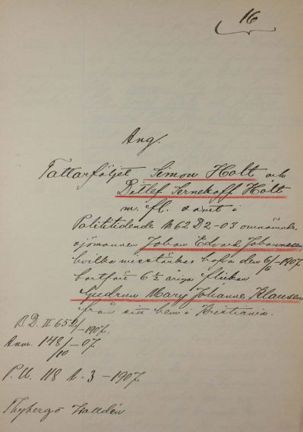 16
Ang.
Tattarföljet Simon Holt och
Detlef Sernekoff Holt
m. fl. samt i
Politidende N 62 D 2-03 omnämnde
sjömannen Johan Edvard Johannesen
hvilka misstänkas hafva den 6/6 1907
bortfört 6½ åriga flickan
Gudrun Mary Johanne Klausen
från sitt hem i Kristiania.
B.D. II 658/1907.
Anm. 148/10 -07.
P.U. 118 A. 3-1907.
Thyberg